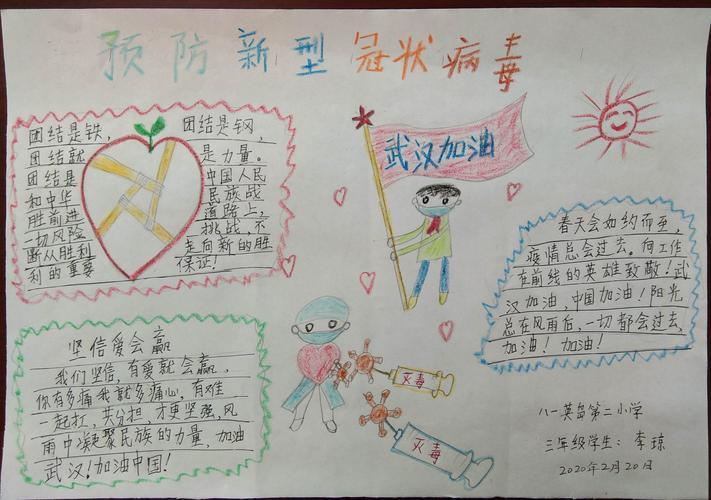 预防新型冠状病毒
团结是铁，团结是钢，
团结就是力量。
团结是中国人民
和中华民族战
胜前进道路上，
一切风险挑战，不
断从胜利走向新的胜
利的重要保证！
武汉加油
春天会如约而至，
疫情总会过去。向工作
在前线的英雄致敬！武
汉加油，中国加油！阳光
总在风雨后，一切都会过去，
加油！加油！
坚信爱会赢
我们坚信，有爱就会赢，
你有多痛我就多痛心，有难
一起扛，共分担才更坚强，风
雨中凝聚民族的力量，加油
武汉！加油中国！
灭毒
灭毒
八一英岛第二小学
三年级学生：李琼
2020年2月20日